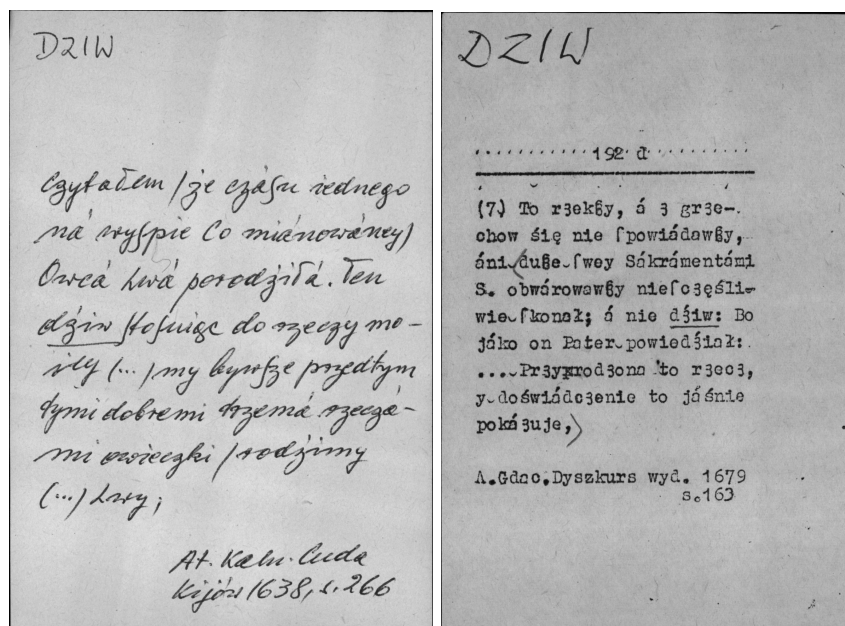 DZIW
czytałem / że czáſu iednego
ná wyſpie Co miánowáney)
Owcá Lwá porodźiłá. Ten
dźiw ſtoſuiąc do rzeczy mo-
iey (...) my bywſze przedtym
tymi dobremi trzemá rzeczá-
mi owieczki / rodźimy
(...) Lwy;
At. Kaln. Cuda
Kijów 1638, s. 266
DZIW
192 d
(7.) To rʒekßy, á ʒ grʒe-
chow śię nie ſpowiádawßy,
áni duße ſwey Sákrámentámi
S. obwárowawßy nieſcʒęśli-
wie ſkonał; á nie dʒ́iw: Bo
jáko on Pater powiedʒ́iał:
.... Prʒyrodʒona to rʒecʒ,
y doświádcʒenie to jáśnie
pokáʒuje,
A.Gdac.Dyszkurs wyd. 1679
s.163